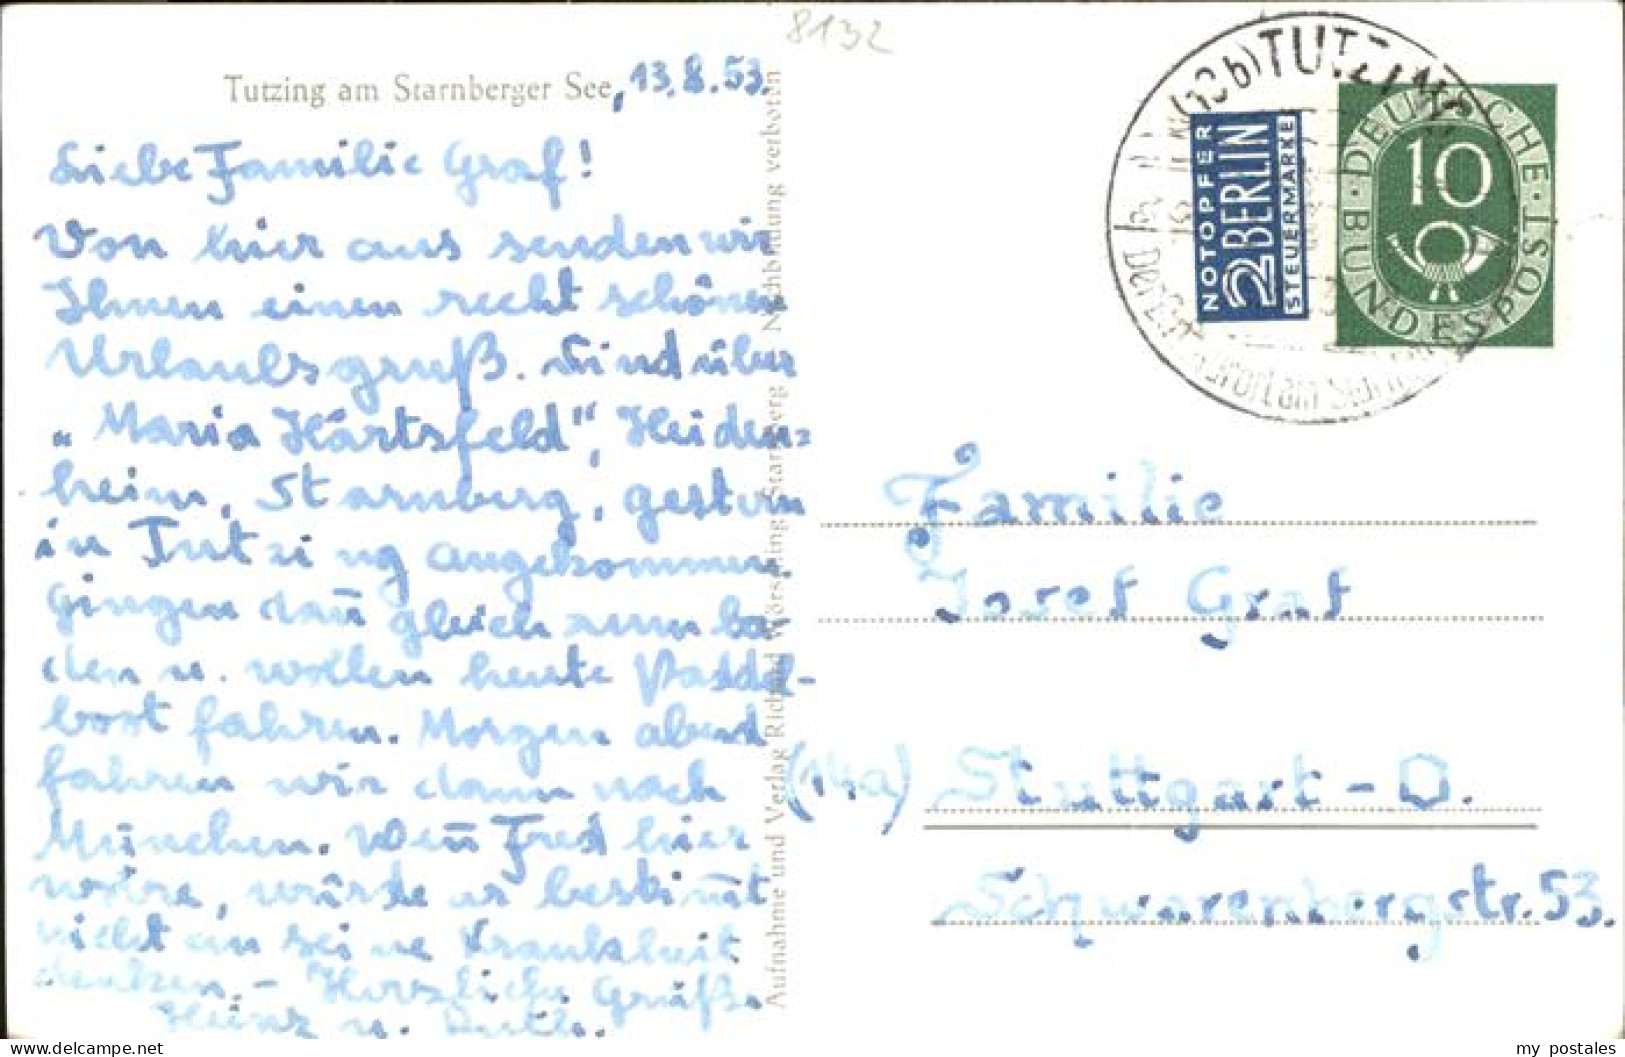 8132
Tutzing am Starnberger See, 13.8.53.
Liebe Familie Graf!
Von hier aus senden wir
Ihnen einen recht schönen
Urlaubsgruß. Sind über
„Maria Härtsfeld", Heiden=
heim, Starnberg, gestern
in Tutzing angekommen.
Gingen dañ gleich zum ba-
den u. wollen heute Paddel-
boot fahren. Morgen abend
fahren wir dann nach
München. Weñ Fred hier
wäre, würde er bestim̅t
nicht an seine Krankheit
denken. – Herzliche Grüße
Heinz u. Ruth.
Aufnahme und Verlag Richard Wörsching, Starnberg · Nachbildung verboten
(13b) TUTZING
NOTOPFER
2 BERLIN
STEUERMARKE
DEUTSCHE BUNDESPOST
10
Familie
Josef Graf
(14a) Stuttgart - O.
Schwarenbergstr. 53.
my postales
www.delcampe.net